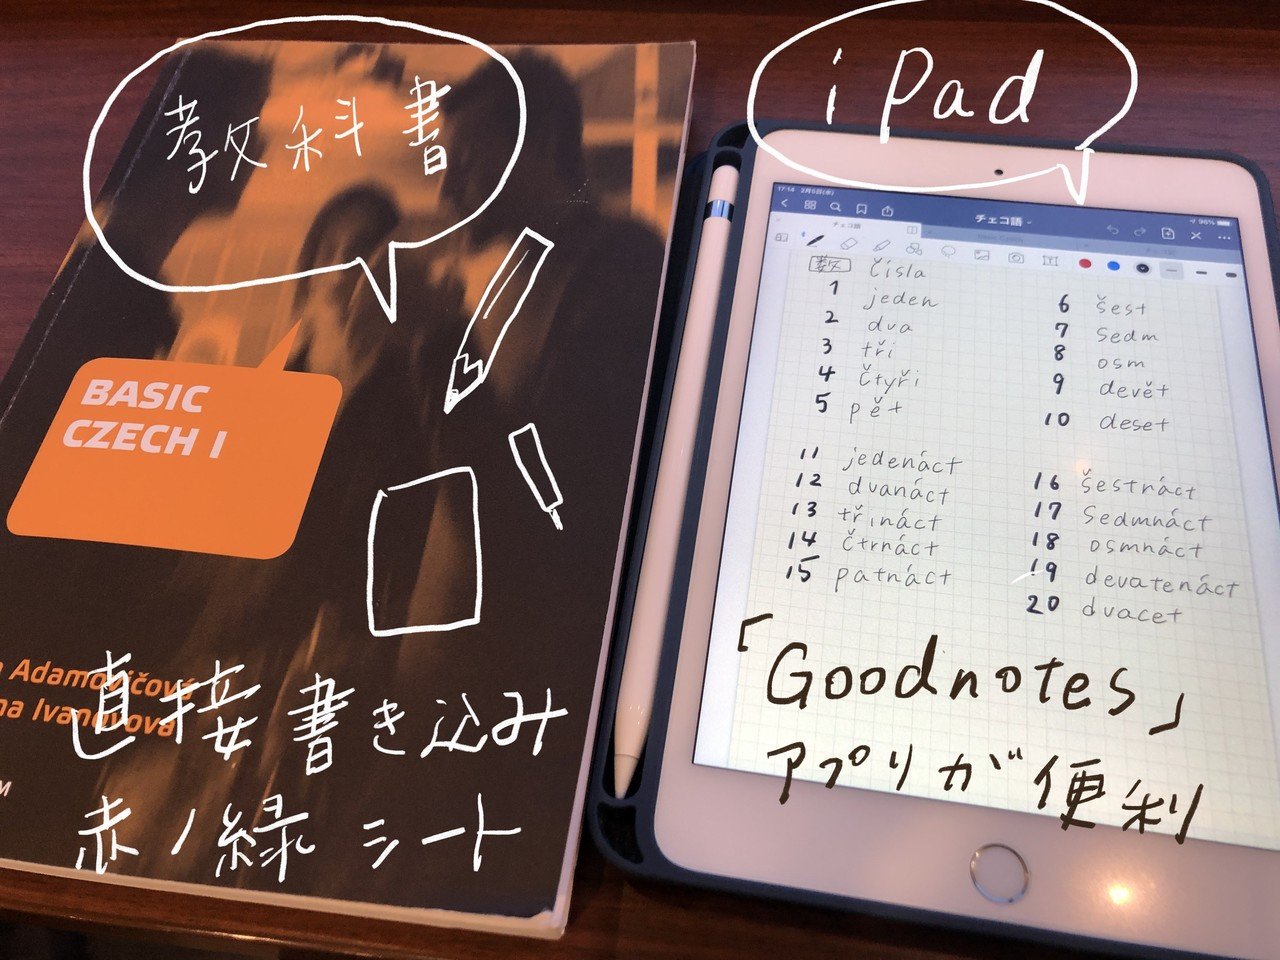 教科書
BASIC
CZECH I
Adamovičová
Ivanovová
直接書き込み
赤/緑シート
iPad
17:14 2月5日(水)
96%
チェコ語
チェコ語
数 čísla
1 jeden
2 dva
3 tři
4 čtyři
5 pět
6 šest
7 sedm
8 osm
9 devět
10 deset
11 jedenáct
12 dvanáct
13 třináct
14 čtrnáct
15 patnáct
16 šestnáct
17 sedmnáct
18 osmnáct
19 devatenáct
20 dvacet
「Goodnotes」
アプリが便利